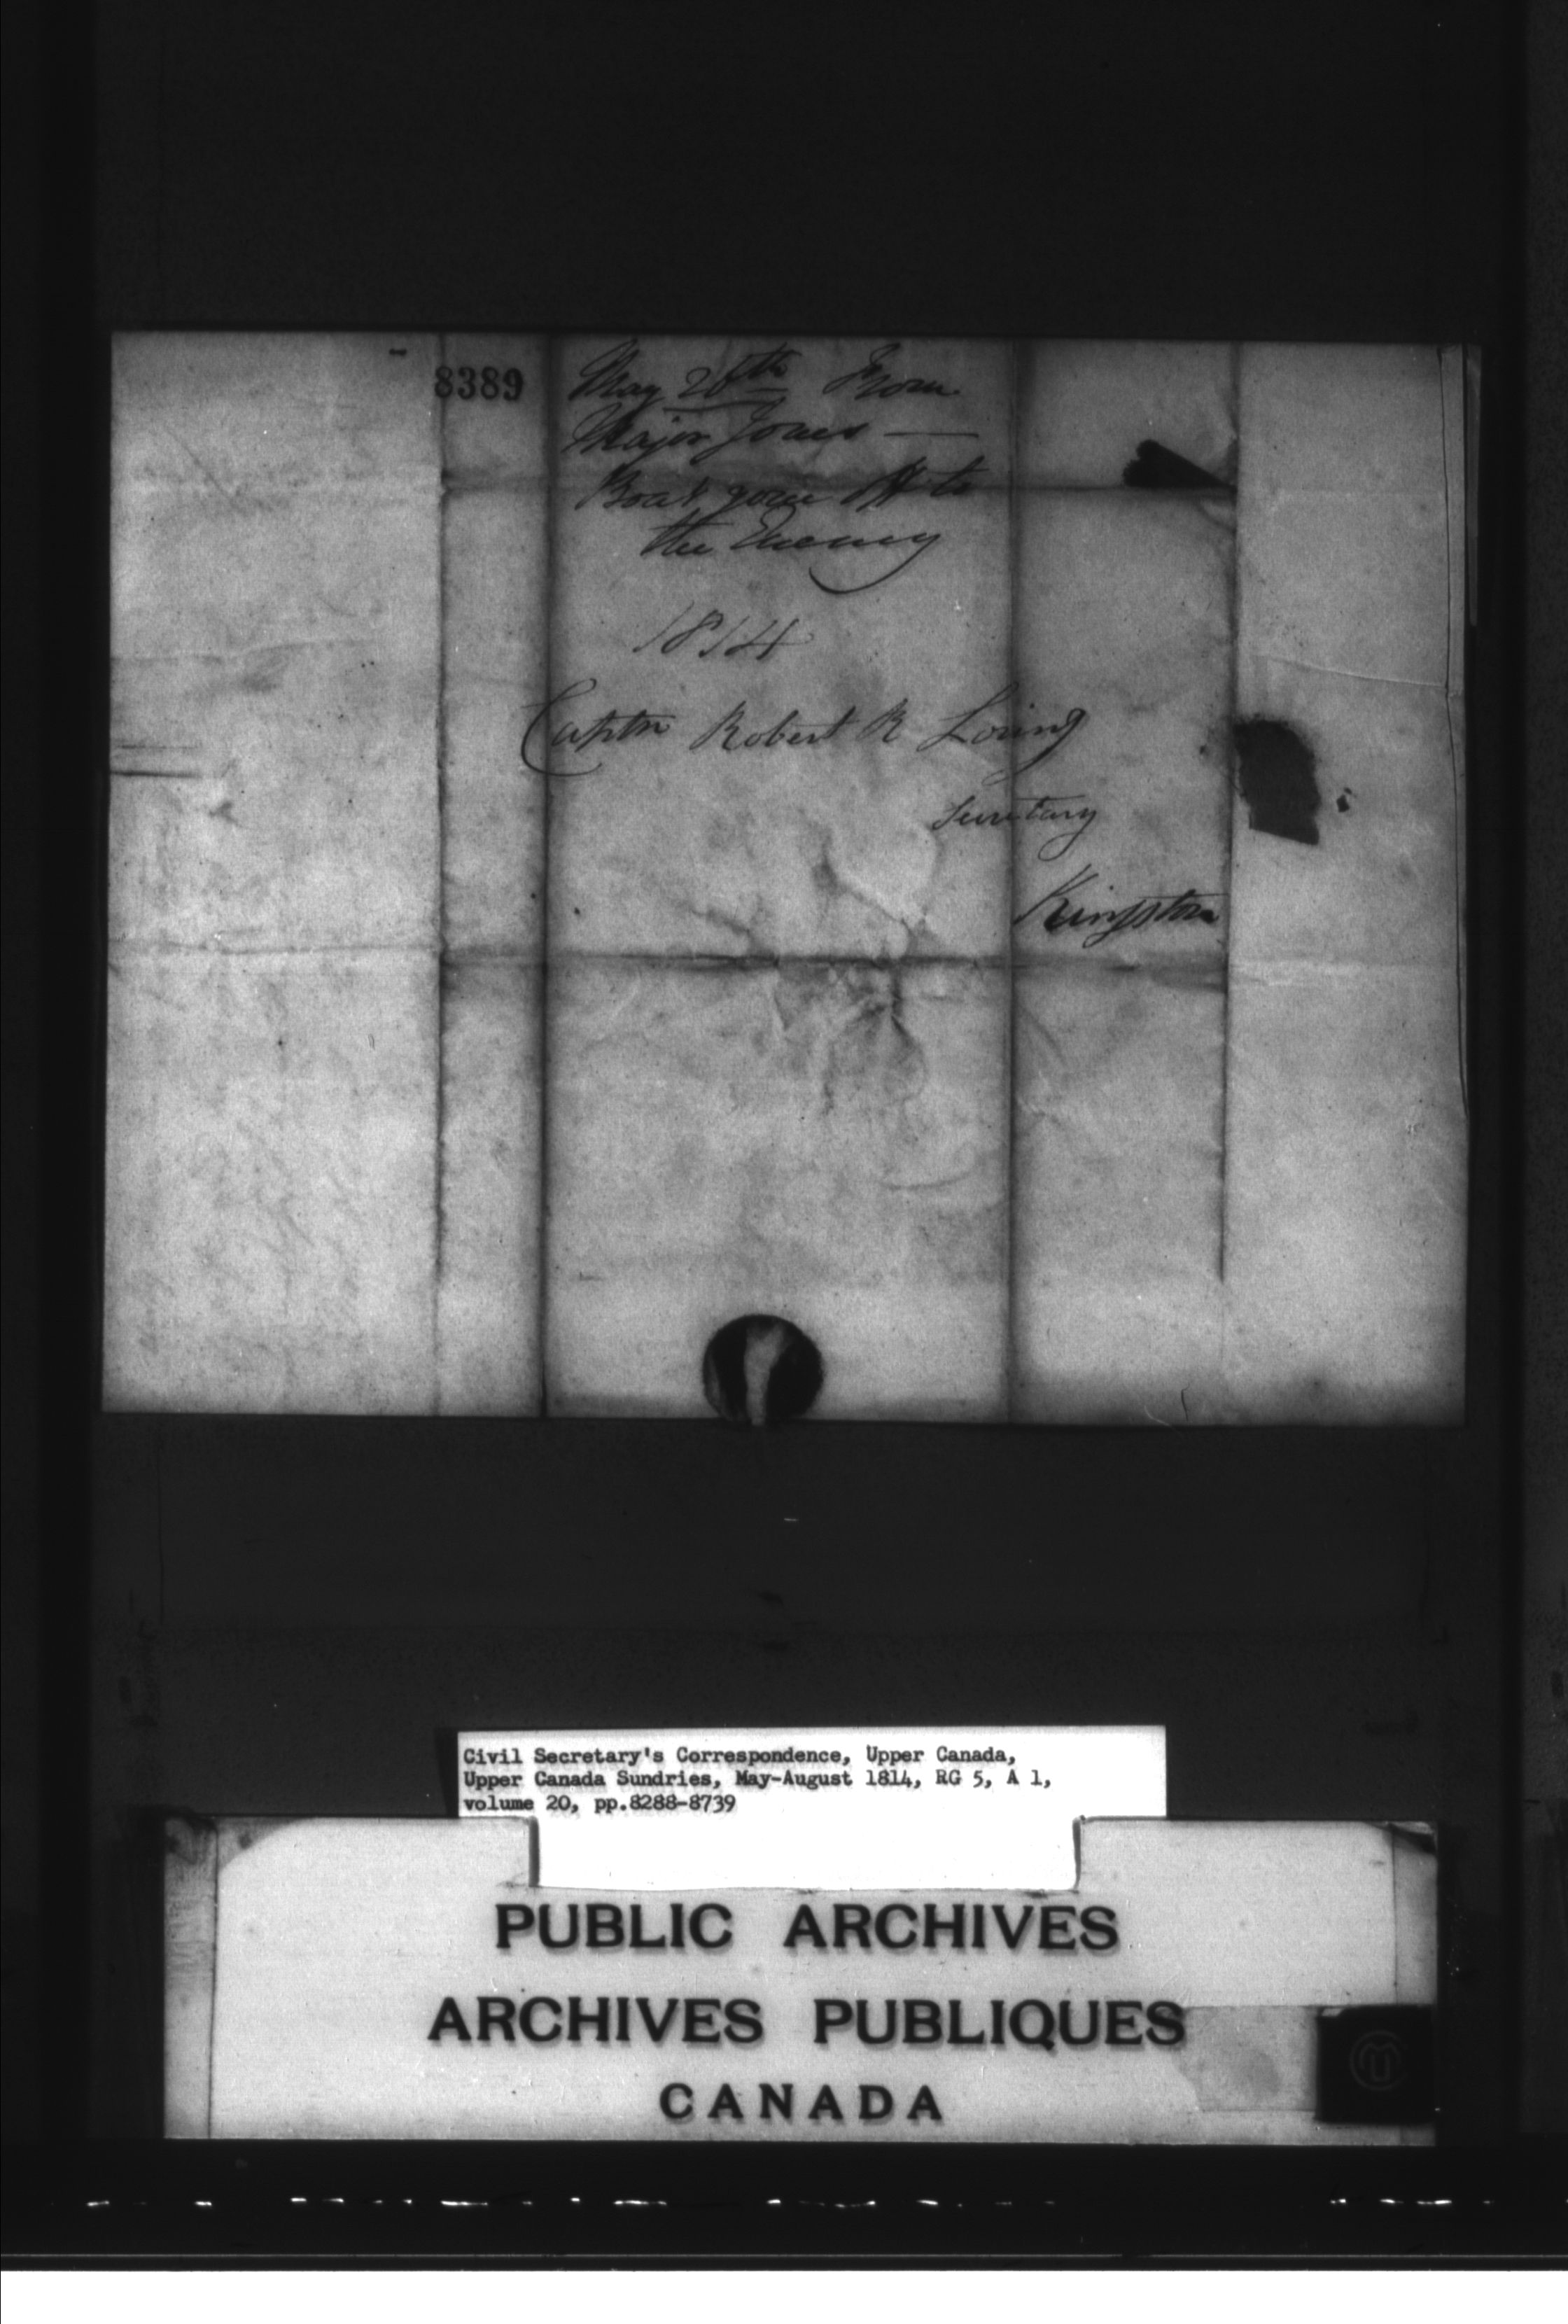 8389
May 26th From
Major Jones —
Boat gone Off to
the Enemy
1814
Captn Robert R Loring
Secretary
Kingston
Civil Secretary's Correspondence, Upper Canada,
Upper Canada Sundries, May-August 1814, RG 5, A 1,
volume 20, pp.8288-8739
PUBLIC ARCHIVES
ARCHIVES PUBLIQUES
CANADA